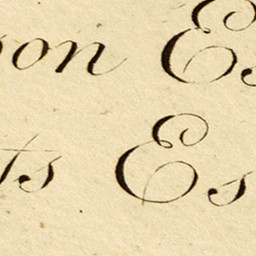 on Es
ts Es